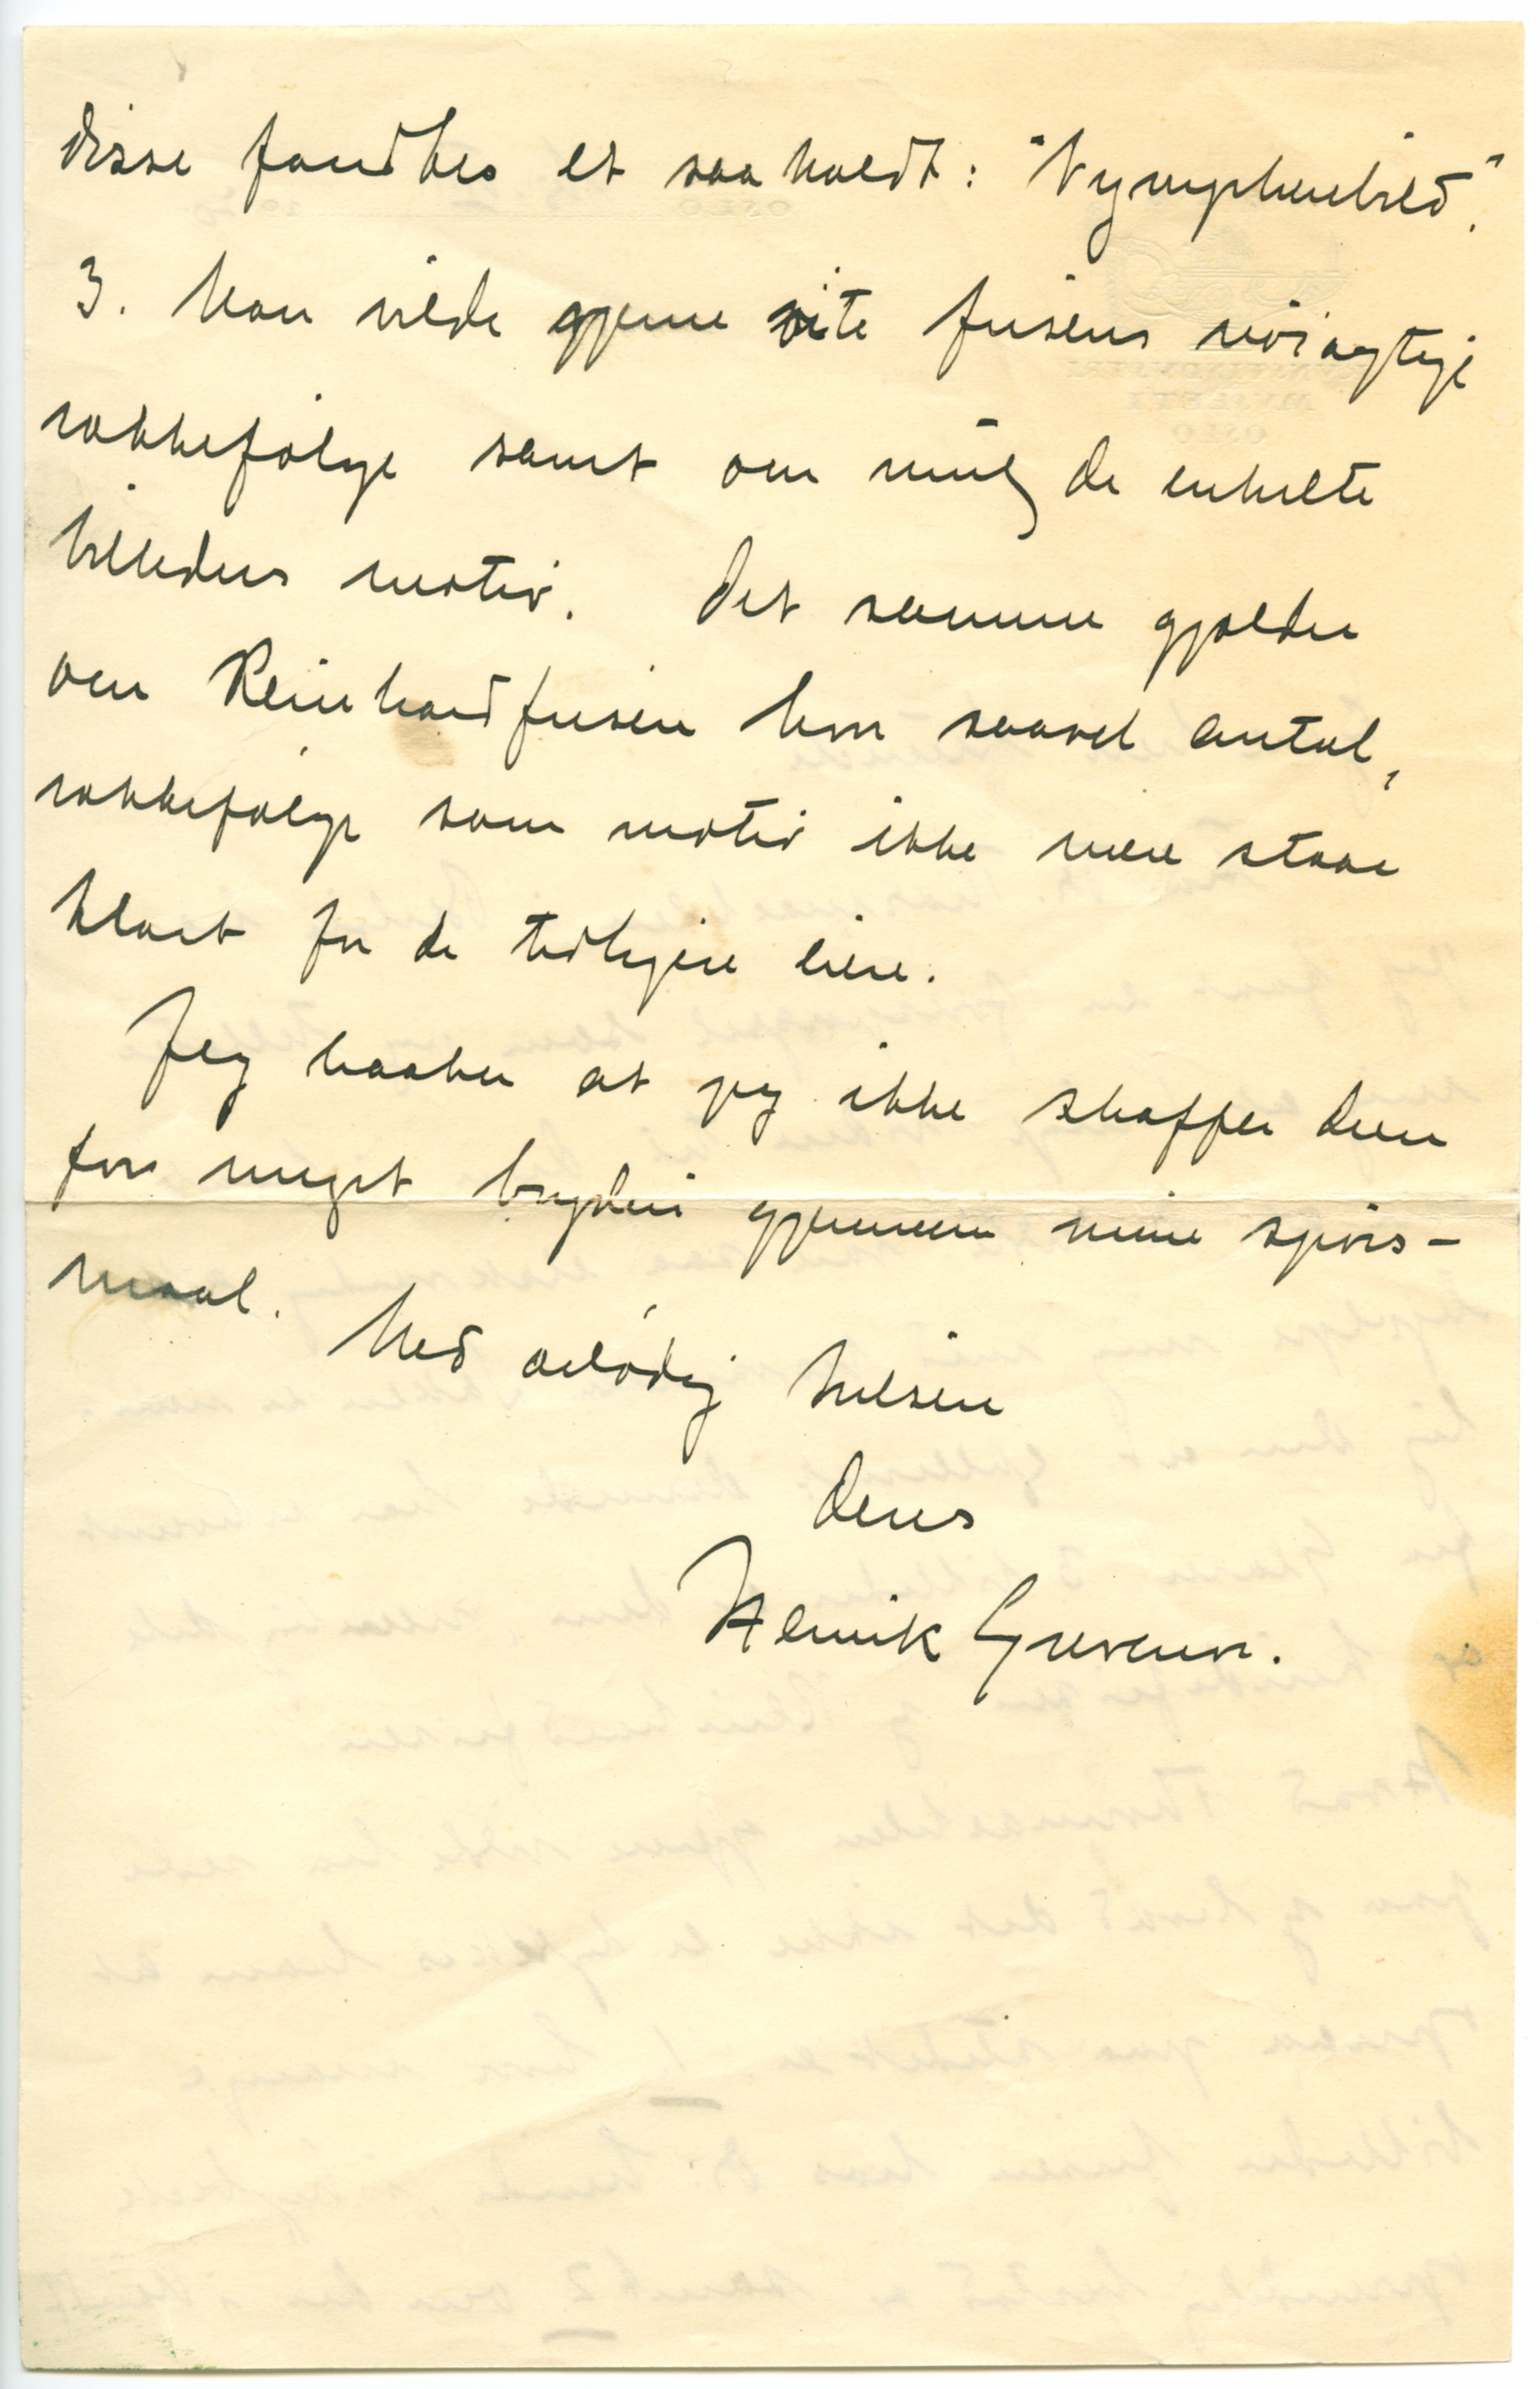 disse fandtes et saakaldt: "Nymphenbild".
3. Han vilde gjerne vite frisens nöiagtige
rækkefölge samt om mulig de enkelte
billeders motiv. Det samme gjælder
om Reinhardfrisen hvor saavel antal,
rækkefölge som motiv ikke mere staar
klart for de tidligere eiere.
Jeg haaber at jeg ikke skaffer Dem
for meget bryderi gjennem mine spörs-
maal.
Med ærbödig hilsen
Deres
Henrik Grevenor.